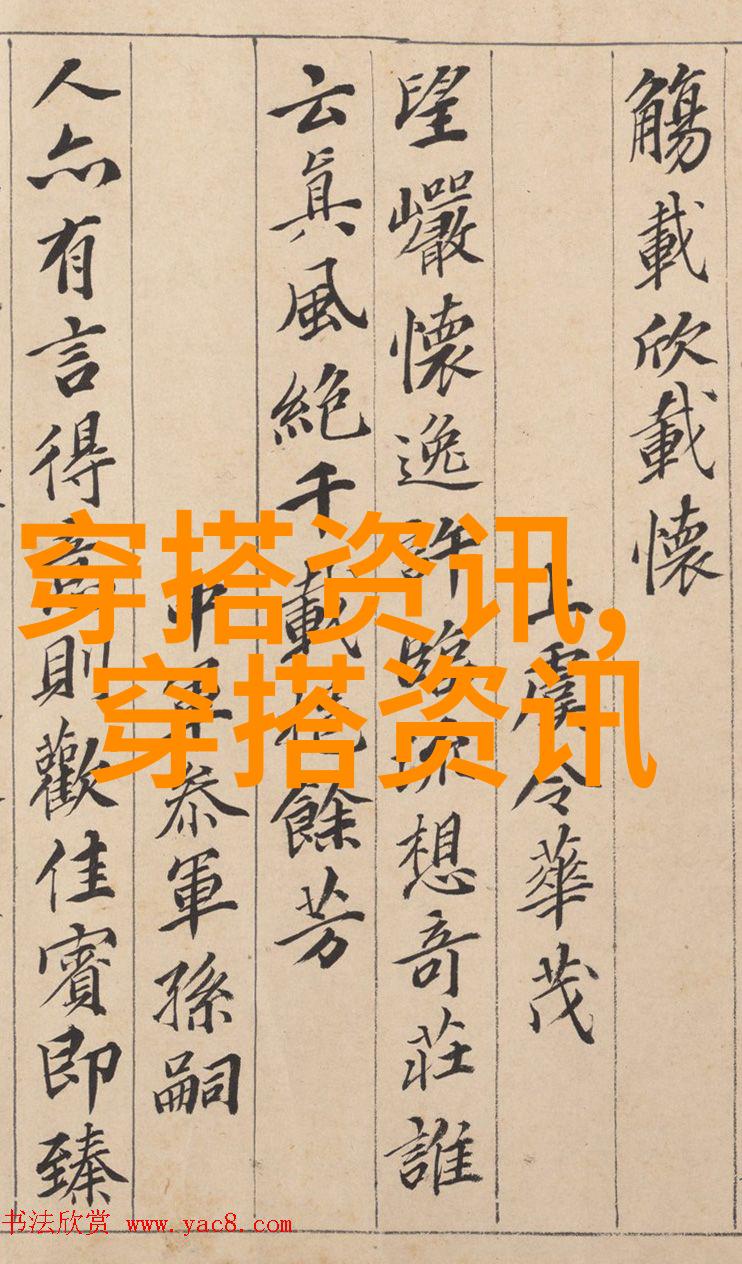 觴載欣載懷
上虞令華茂
望巖懷逸許臨流想奇莊誰
云眞風絶千載挹餘芳
中軍叅軍孫嗣
人亦有言得意則歡佳賓即臻
穿搭资讯,
穿搭资讯
书法欣赏 www.yac8.com